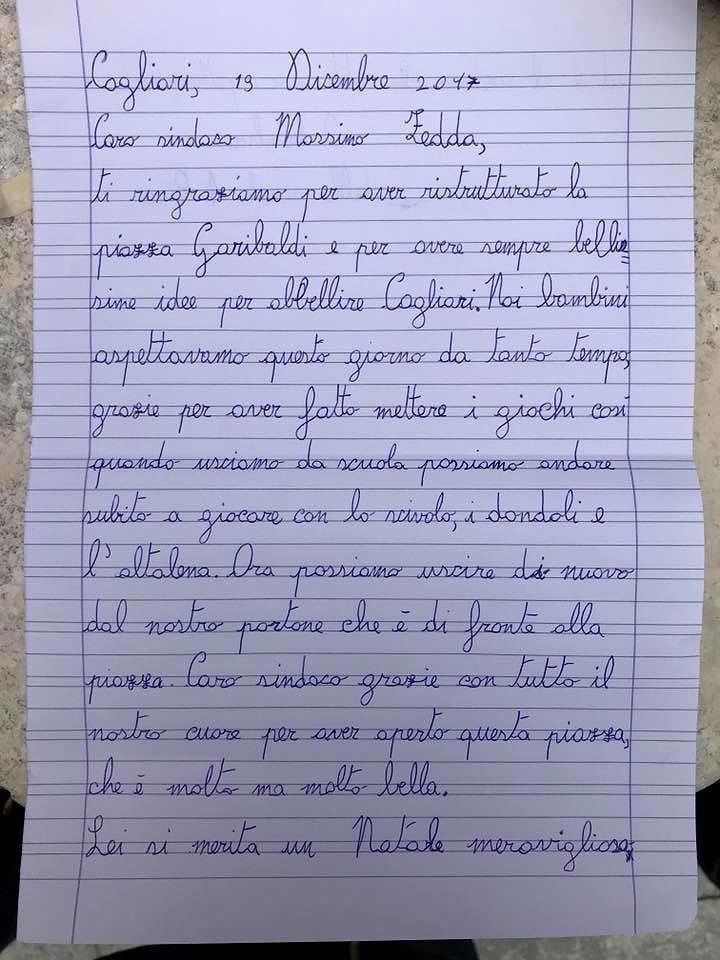 Cagliari, 19 Dicembre 2017
Caro sindaco Massimo Zedda,
ti ringraziamo per aver ristrutturato la
piazza Garibaldi e per avere sempre bellis
sime idee per abbellire Cagliari. Noi bambini
aspettavamo questo giorno da tanto tempo,
grazie per aver fatto mettere i giochi così
quando usciamo da scuola possiamo andare
subito a giocare con lo scivolo, i dondoli e
l'altalena. Ora possiamo uscire di nuovo
dal nostro portone che è di fronte alla
piazza. Caro sindaco grazie con tutto il
nostro cuore per aver aperto questa piazza,
che è molto ma molto bella.
Lei si merita un Natale meraviglioso,